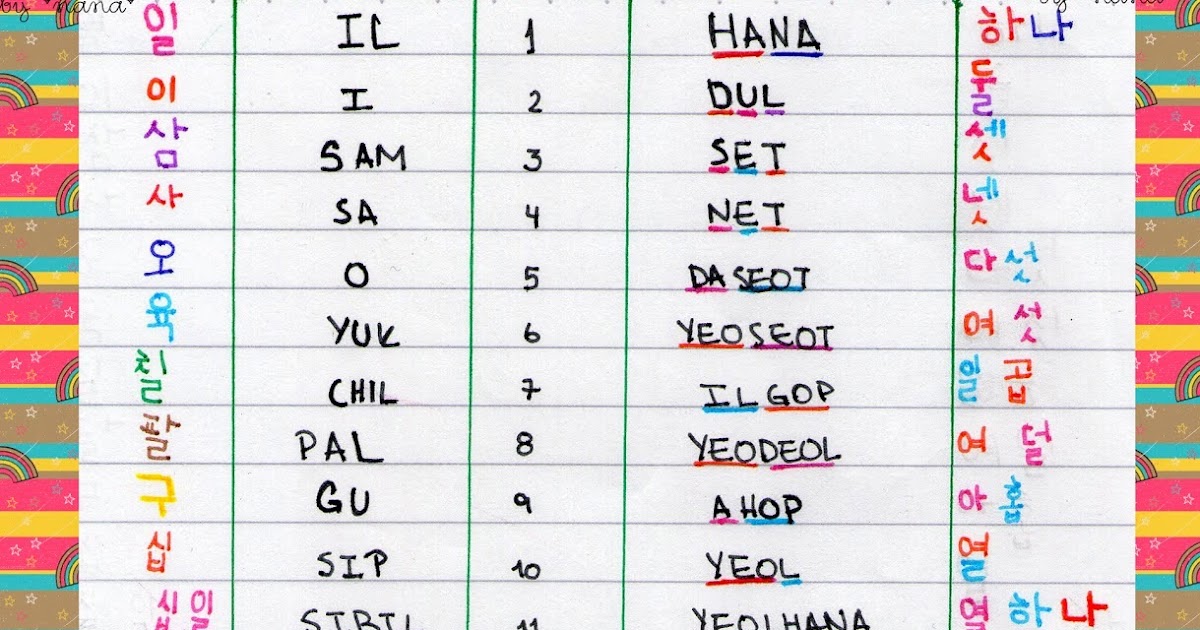 by *nana* by *nana*
일 IL 1 HANA 하나
이 I 2 DUL 둘
삼 SAM 3 SET 셋
사 SA 4 NET 넷
오 O 5 DASEOT 다섯
육 YUK 6 YEOSEOT 여섯
칠 CHIL 7 ILGOP 일곱
팔 PAL 8 YEODEOL 여덜
구 GU 9 AHOP 아홉
십 SIP 10 YEOL 열
십일 SIBIL 11 YEOLHANA 열하나